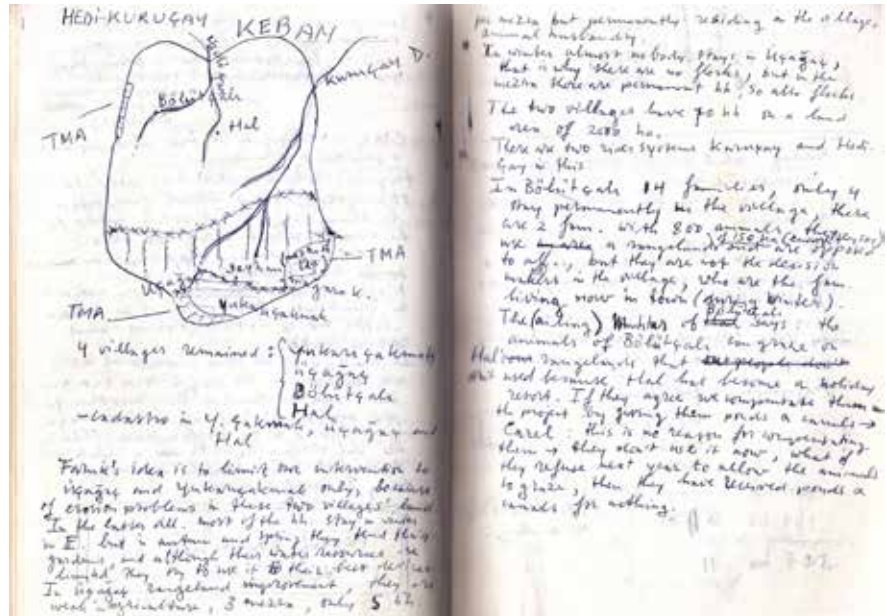 HEDİ-KURUÇAY
KEBAN
Kuruçay D.
Bölütçalı
Hal
TMA
TMA
TMA
4 villages remained: Yukarıçakmak
Üçağaç
Bölütçalı
Hal
- cadastro in Y. Çakmak, Üçağaç and
Hal
Faruk's idea is to limit our intervention to
Üçağaç and Yukarıçakmak only, because
of erosion problems in these two villages' land.
In the latter all. most of the hh. stay in winter
in E. but in autumn and spring they tend their
gardens, and although their water resources are
limited they try to use it to their best
In Üçağaç rangeland improvement they are
weak agriculture, 3 mezra, only 5 hh.
for mezra but permanently residing in the village
animal husbandry.
In winter almost nobody stays in Üçağaç,
that is why there are no flocks, but in the
mezra there are permanent hh, so also flocks
The two villages have 70 hh on a land
area of 2000 ha.
There are two rides systems Kuruçay and Hedi-
çay in this
In Bölütçalı 14 families, only 4
stay permanently in the village, there
are 2 fam. with 800 animals, they
use a rangeland of 150 ha and are opposed
to all.., but they are not the decision
makers in the village, who are the fam.
living now in town (during winter).
The (acting) Muhtar of Bölütçalı says: the
animals of Bölütçalı can graze on
Hal rangelands that
isn't used because Hal has become a holiday
resort. If they agree we compensate them in
the project by giving them ponds & canals →
Carel: this is no reason for compensating
them → they don't use it now, what if
they refuse next year to allow the animals
to graze, then they have received ponds &
canals for nothing.